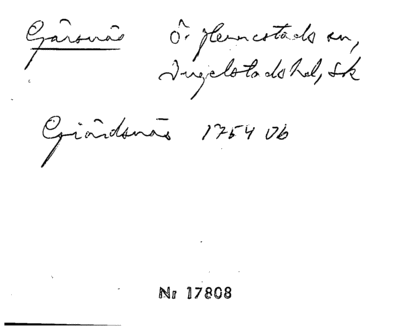 Gärsnäs Ö. Herrestads sn,
Ingelstads hd, Sk
Giärdsnäs 1754 Vb
Nr 17808